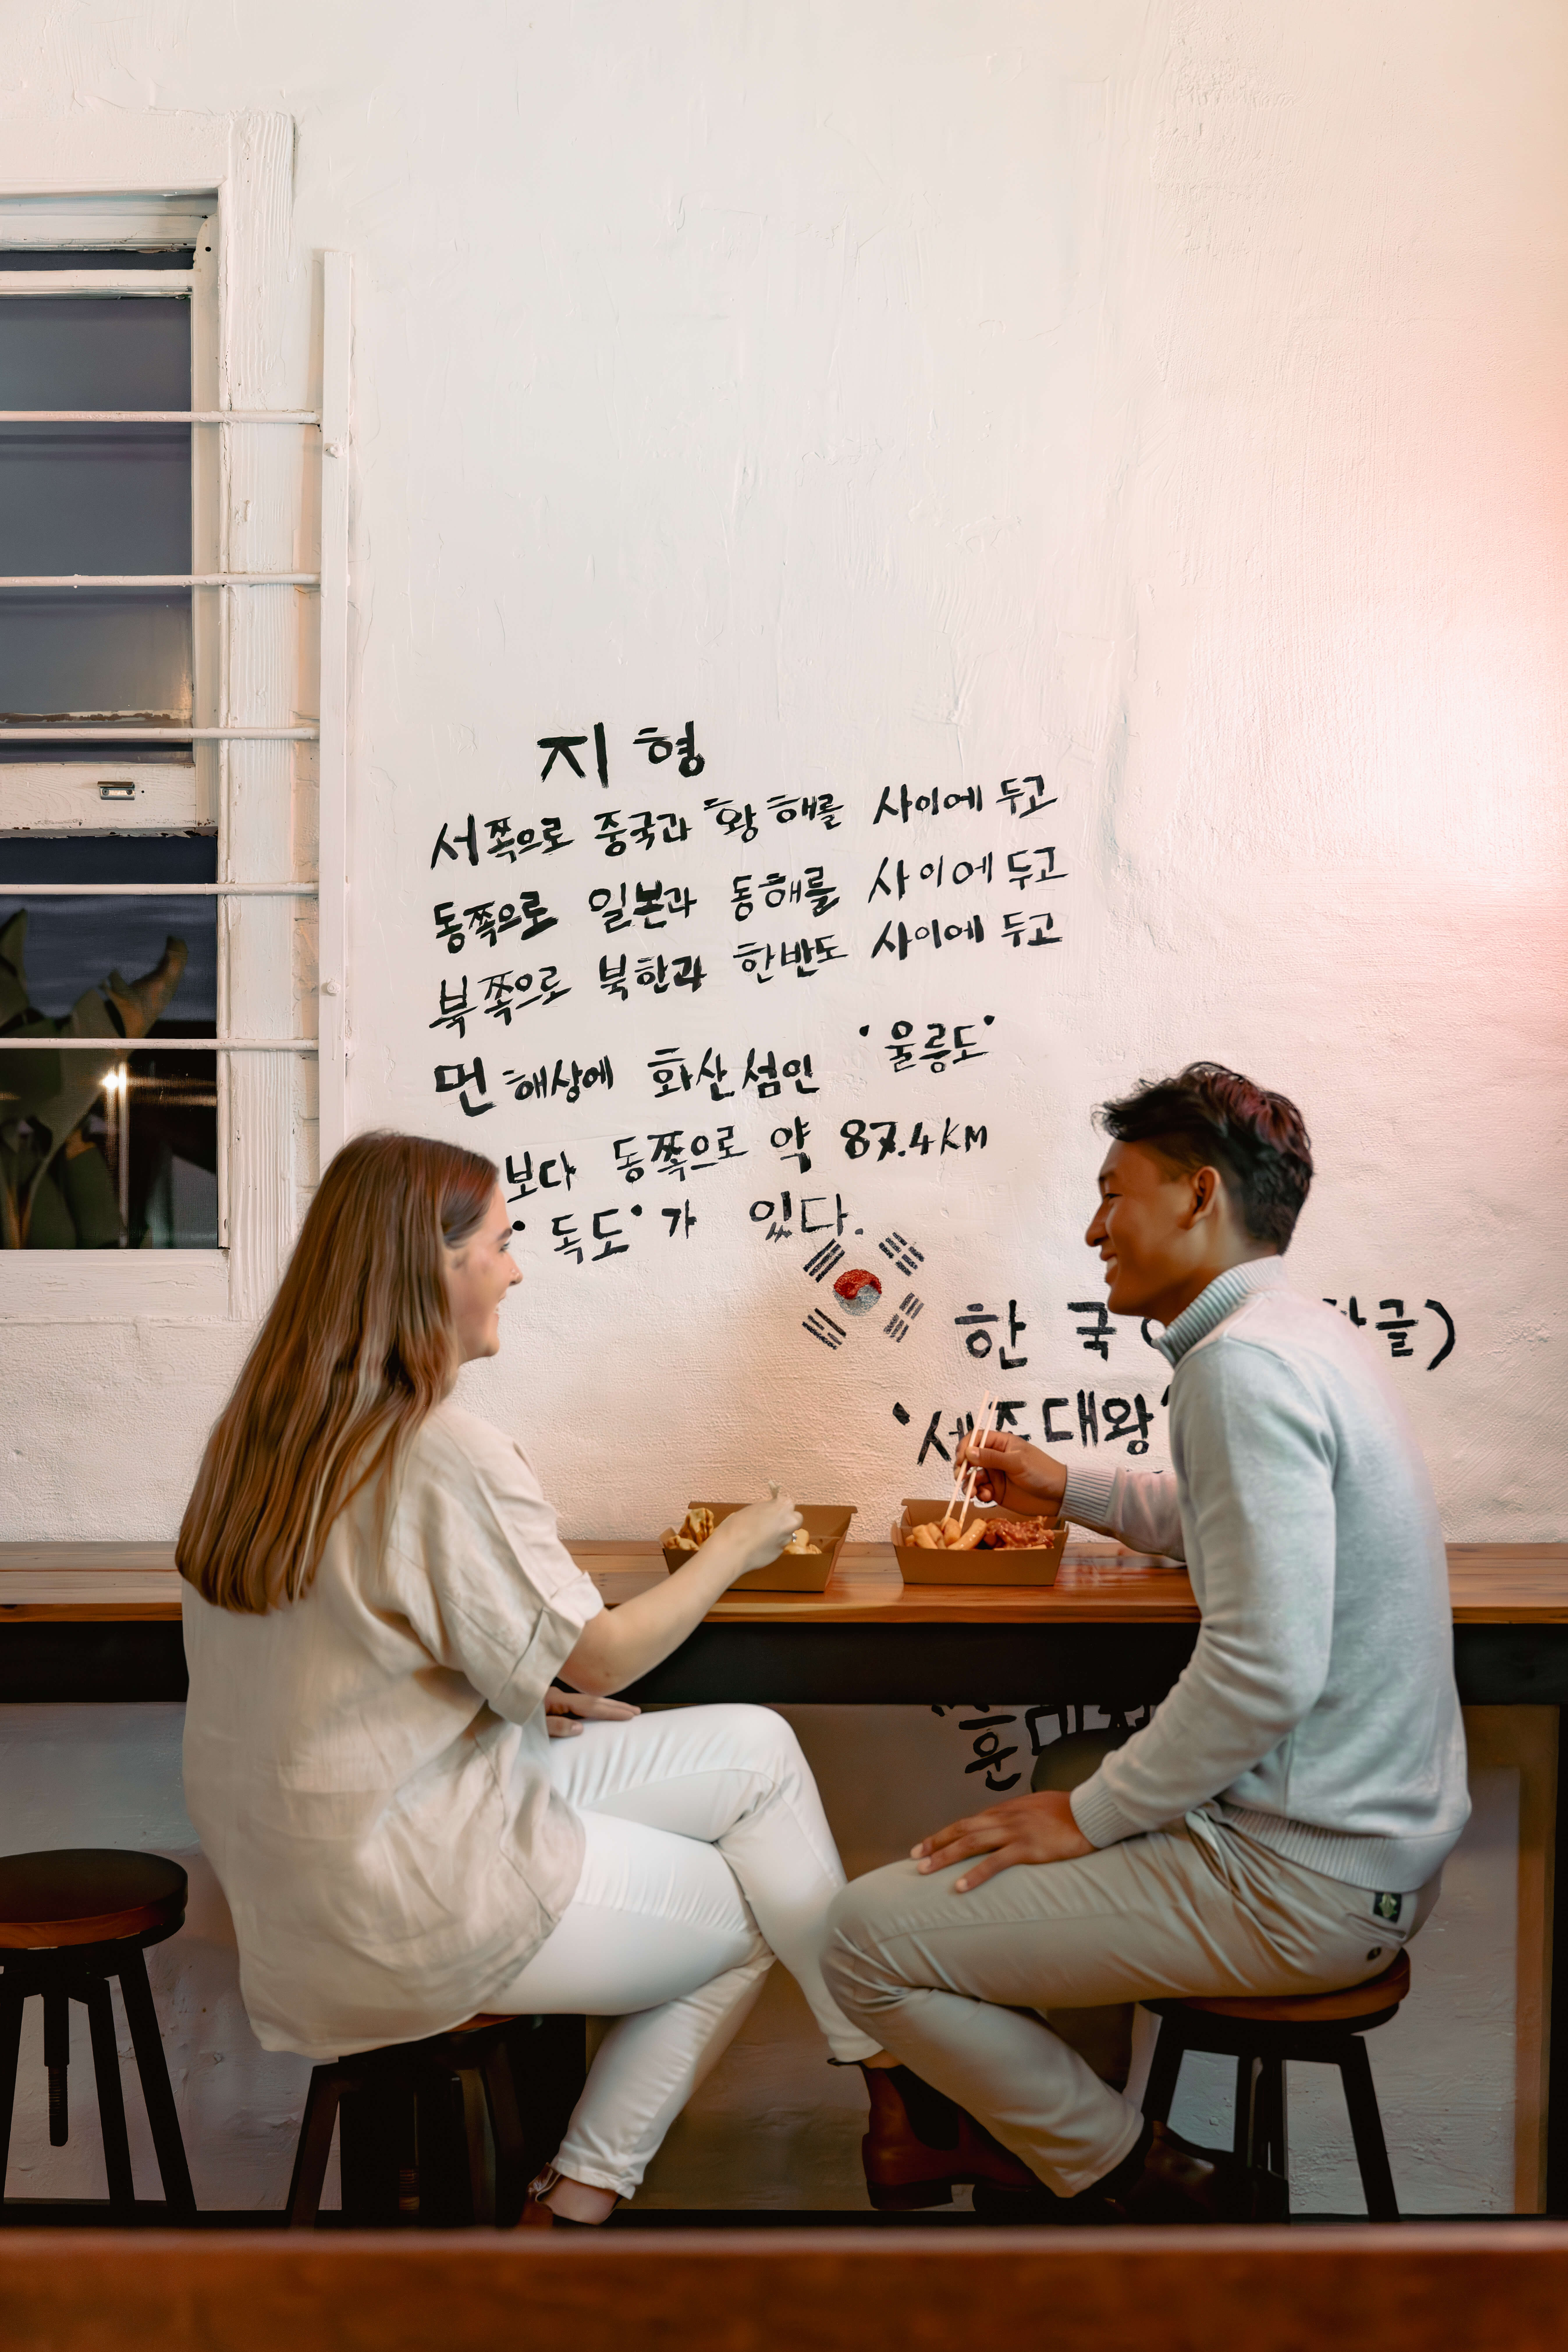 지형
서쪽으로 중국과 황해를 사이에 두고
동쪽으로 일본과 동해를 사이에 두고
북쪽으로 북한과 한반도 사이에 두고
먼 해상에 화산섬인 '울릉도'
보다 동쪽으로 약 87.4KM
'독도'가 있다.
한국( 글)
대왕'